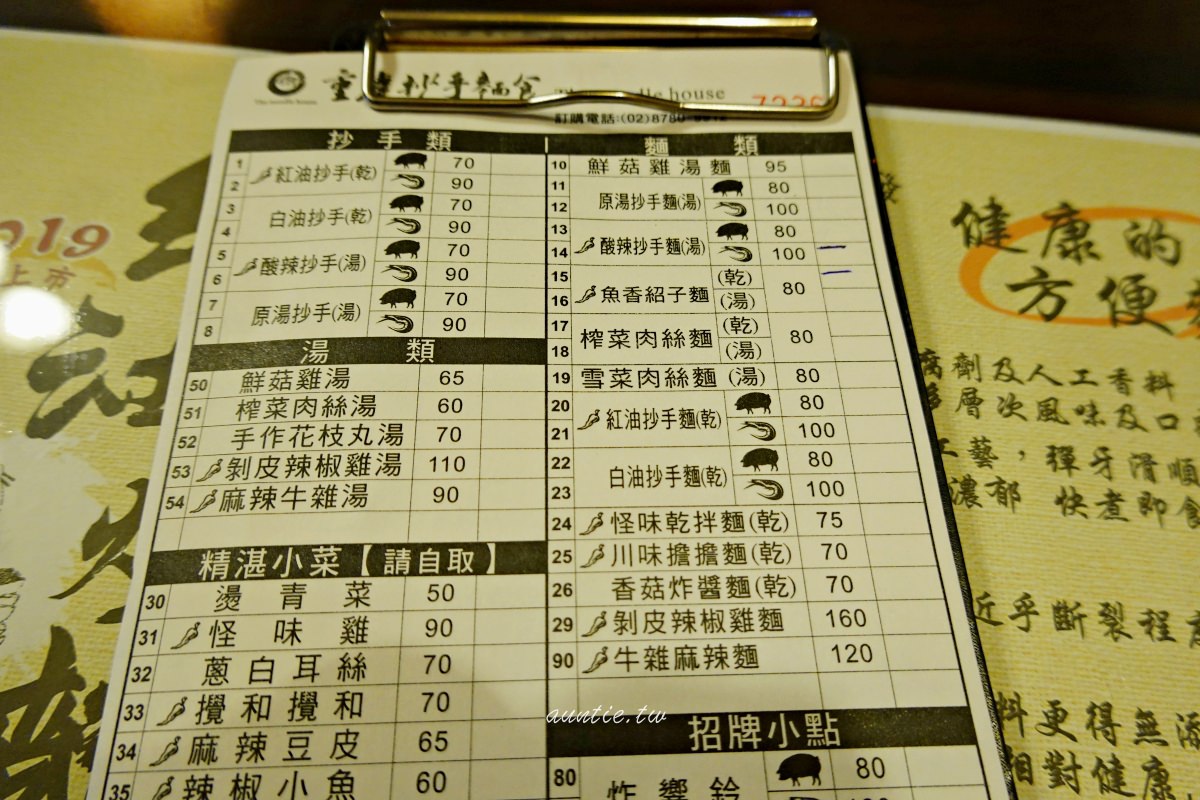 重慶抄手麵食
The noodle house
訂購電話:(02)8780-
抄手類
1 紅油抄手(乾) 70
2 90
3 白油抄手(乾) 70
4 90
5 酸辣抄手(湯) 70
6 90
7 原湯抄手(湯) 70
8 90
湯類
50 鮮菇雞湯 65
51 榨菜肉絲湯 60
52 手作花枝丸湯 70
53 剝皮辣椒雞湯 110
54 麻辣牛雜湯 90
精湛小菜【請自取】
30 燙青菜 50
31 怪味雞 90
32 蔥白耳絲 70
33 攪和攪和 70
34 麻辣豆皮 65
35 辣椒小魚 60
麵類
10 鮮菇雞湯麵 95
11 原湯抄手麵(湯) 80
12 100
13 酸辣抄手麵(湯) 80
14 100
15 魚香紹子麵 (乾) 80
16 (湯)
17 榨菜肉絲麵 (乾) 80
18 (湯)
19 雪菜肉絲麵 (湯) 80
20 紅油抄手麵(乾) 80
21 100
22 白油抄手麵(乾) 80
23 100
24 怪味乾拌麵(乾) 75
25 川味擔擔麵(乾) 70
26 香菇炸醬麵(乾) 70
29 剝皮辣椒雞麵 160
90 牛雜麻辣麵 120
招牌小點
80 炸響鈴 80
auntie.tw
019
上市
健康的
方便
腐劑及人工香料
層次風味及口
工藝，彈牙滑順
濃郁 快煮即食
近乎斷裂程
料更得無添
相對健康